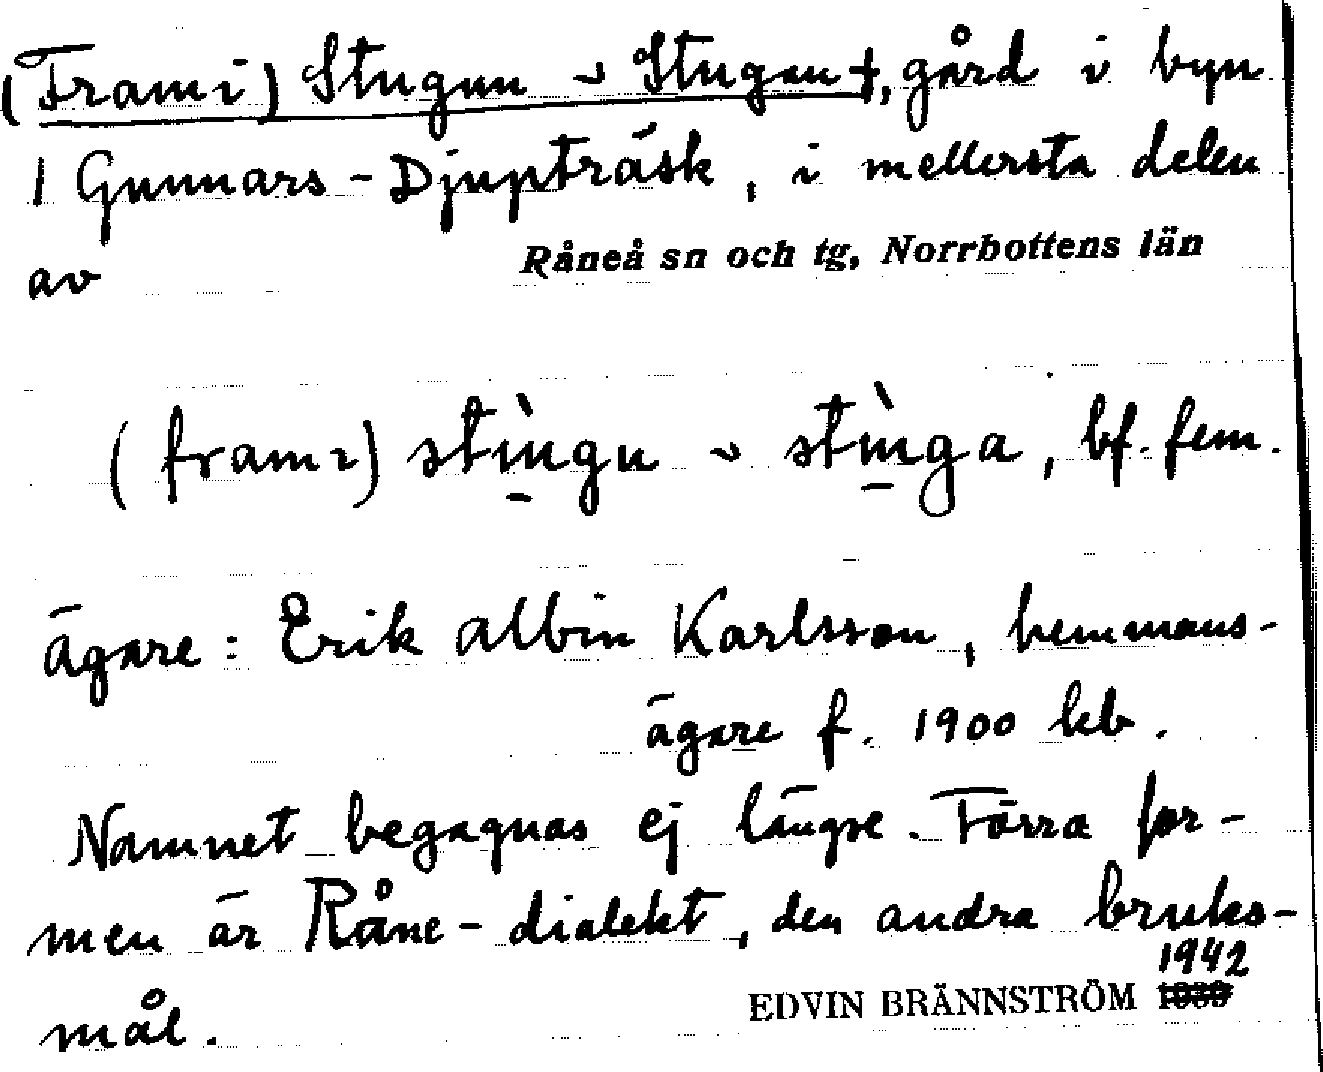 (Fram i) Stugun ~ Stugan †, gård i byn
1 Gunnars-Djupträsk, i mellersta delen
av Råneå sn och tg, Norrbottens län
(fram ɪ) stìngu ~ stìnga, bf. fem.
ägare: Erik Albin Karlsson, hemmans-
ägare f. 1900 kb.
Namnet begagnas ej längre. Förra for-
men är Råne-dialekt, den andra bruks-
1942
mål. EDVIN BRÄNNSTRÖM 1939